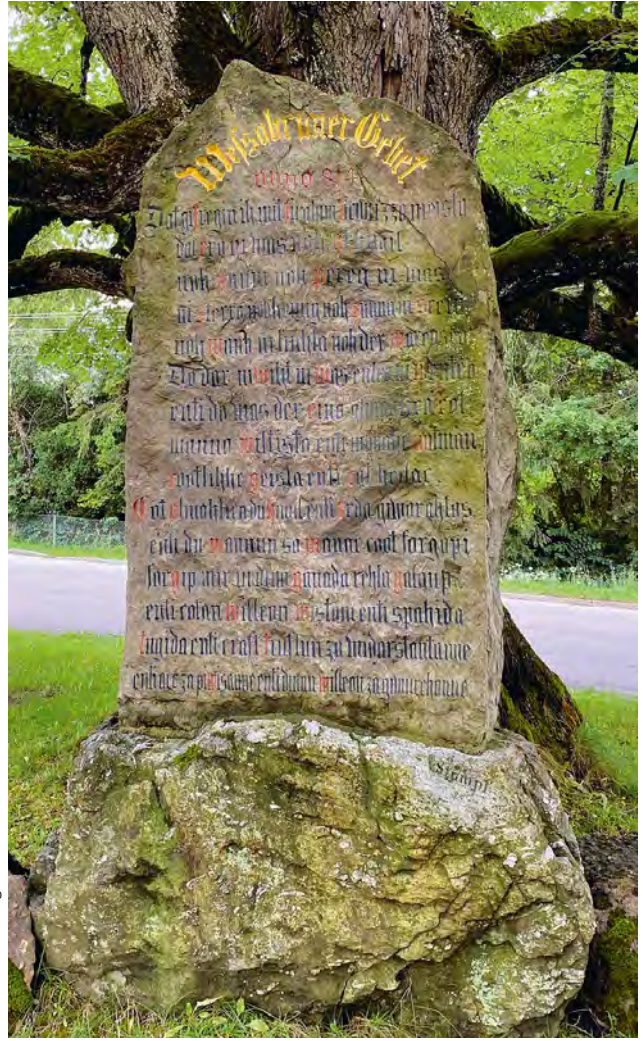 Wessobruner Gebet
anno 814
Dat gifregin ih mit firahim firiuuizzo meista
dat ero ni uuas noh ufhimil
noh paum noh pereg ni uuas
ni sterro nohheinig noh sunna ni scein
noh mano ni liuhta noh der mareo seo
Do dar niuuiht ni uuas enteo ni uuenteo
enti do uuas der eino almahtico cot
manno miltisto enti manake mit inan
cootlihhe geista enti cot heilac
Cot almahtico du himil enti erda gauuorahtos
enti du mannun so manac coot forgapi
forgip mir in dina ganada rehta galaupa
enti cotan uuilleon uuistom enti spahida
tugida enti craft tiuflun za uuidarstantanne
enti arc za piuuisanne enti dinan uuilleon za gauurchanne
Stumpf